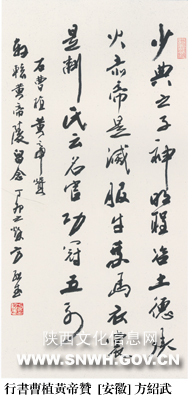 少典之子神明聖哲土德承
火赤帝是滅服牛乘馬衣裳
是制氏云名官功冠五列
右曹植黄帝贊
軒轅黄帝陵留念 丁卯之方紹武
陕西文化信息网
WWW.SNWH.GOV.CN
行書曹植黃帝贊 [安徽] 方紹武